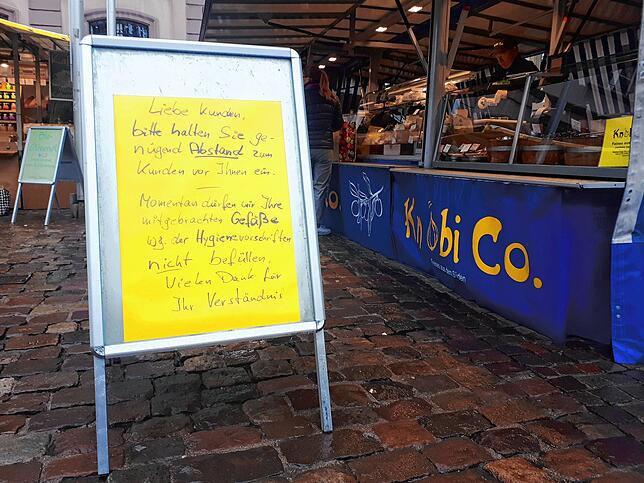 Liebe Kunden,
bitte halten Sie ge-
nügend Abstand zum
Kunden vor Ihnen ein.
Momentan dürfen wir Ihre
mitgebrachten Gefäße
bzg. der Hygienevorschriften
nicht befüllen.
Vielen Dank für
Ihr Verständnis
Knobi Co.
Feines aus dem Süden
Knobi